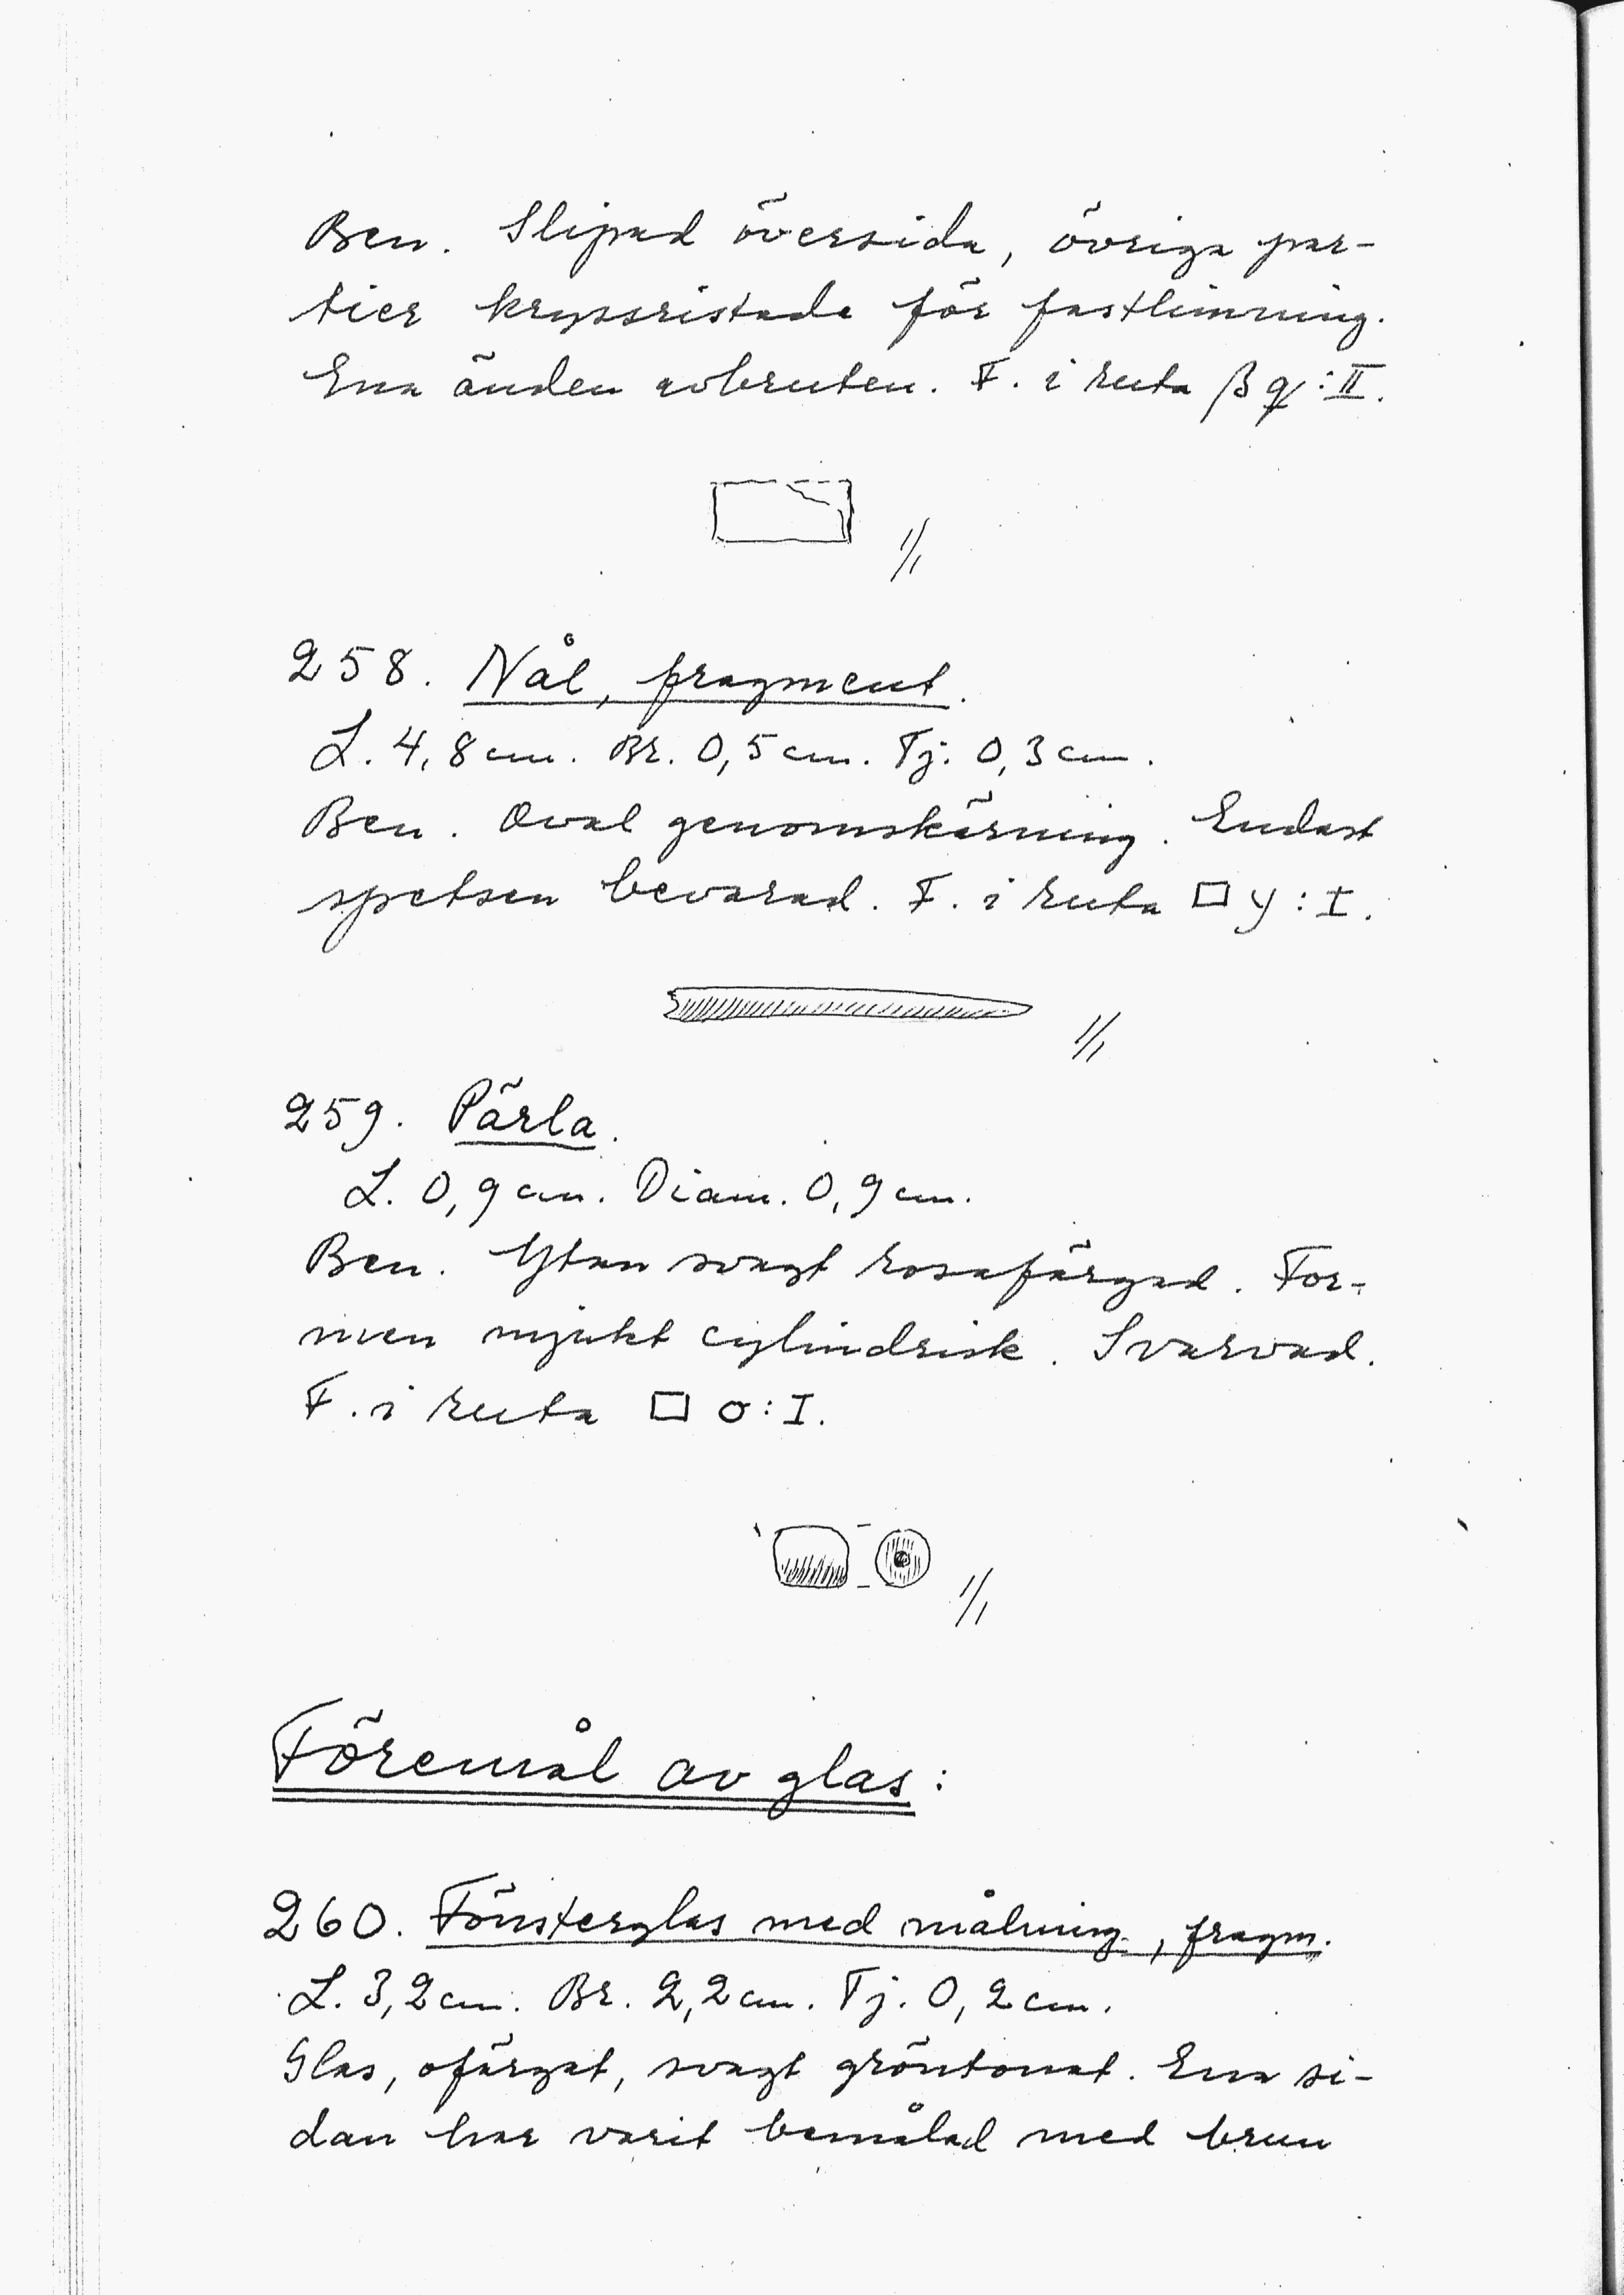 Ben. Slipad översida, övriga par-
tier kryssristade för fastlimning.
Ena änden avbruten. F. i ruta β q:II.
1/1
258. Nål, fragment.
L. 4,8 cm. Br. 0,5 cm. Tj. 0,3 cm.
Ben. Oval genomskärning. Endast
spetsen bevarad. F. i ruta □ y:I.
1/1
259. Pärla.
L. 0,9 cm. Diam. 0,9 cm.
Ben. Ytan svagt rosafärgad. For-
men mjukt cylindrisk. Svarvad.
F. i ruta □ o:I.
1/1
Föremål av glas:
260. Fönsterglas med målning, fragm.
L. 3,2 cm. Br. 2,2 cm. Tj. 0,2 cm.
Glas, ofärgat, svagt gröntonat. Ena si-
dan har varit bemålad med brun